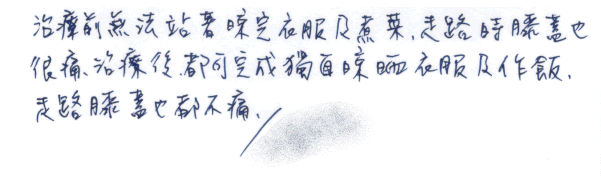 治療前無法站著晾完衣服及煮菜,走路時膝蓋也
很痛、治療後都可完成獨自晾晒衣服及作飯,
走路膝蓋也都不痛.